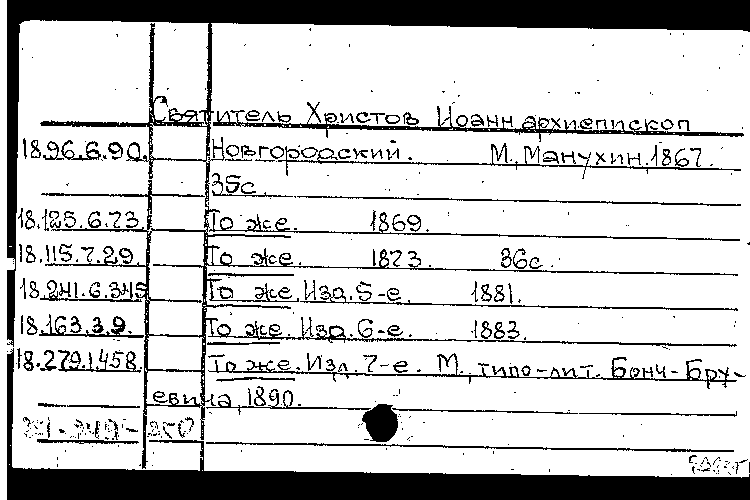 Святитель Христов Иоанн архиепископ
18.96.6.90. Новгородский. М., Манухин, 1867.
36с.
18.125.6.73. То же. 1869.
18.115.7.29. То же. 1873. 36с.
18.241.6.345 То же. Изд. 5-е. 1881.
18.163.3.9. То же. Изд. 6-е. 1883.
18.279.1.458. То же. Изд. 7-е. М., типо-лит. Бонч-Бру-
евича, 1890.